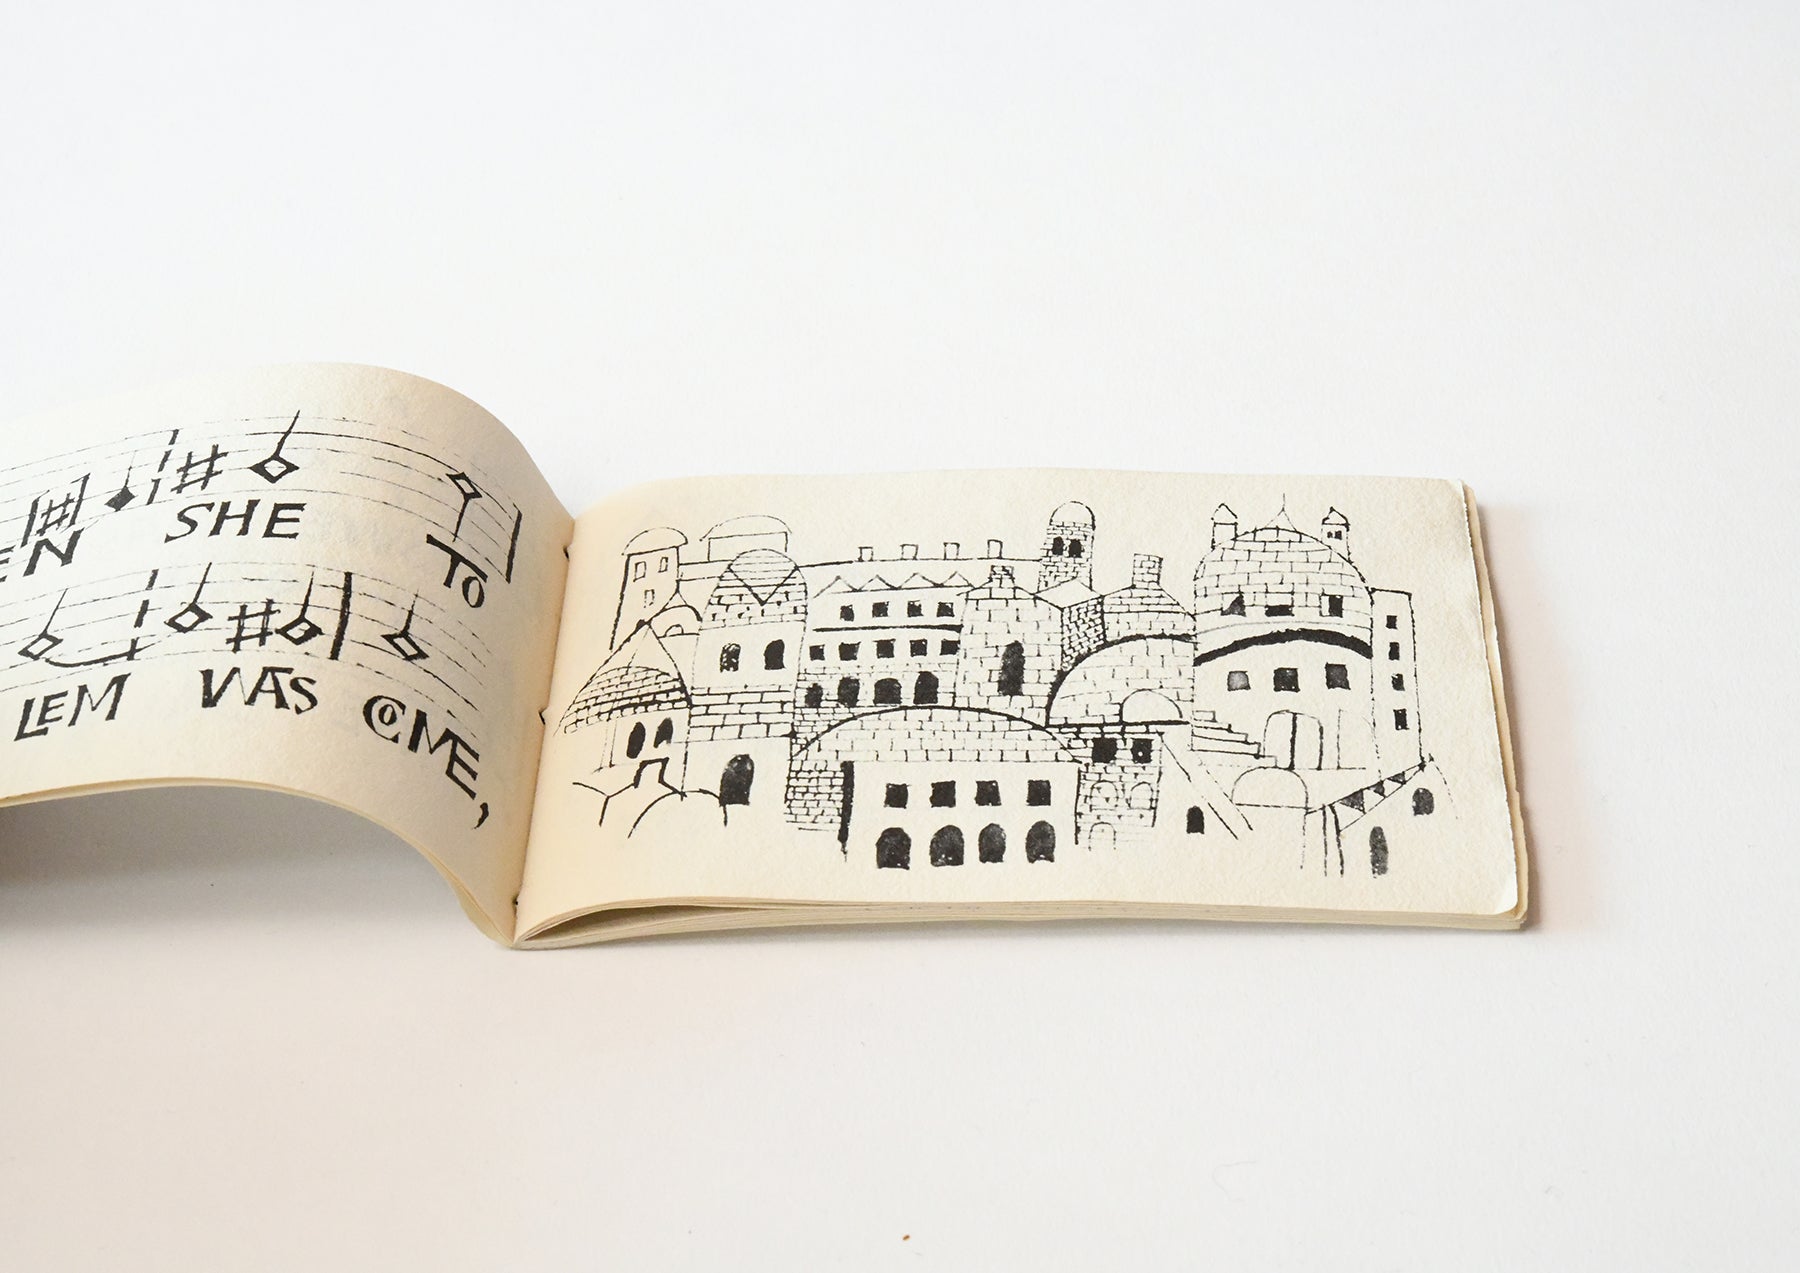 EN SHE TO
LEM WAS COME,